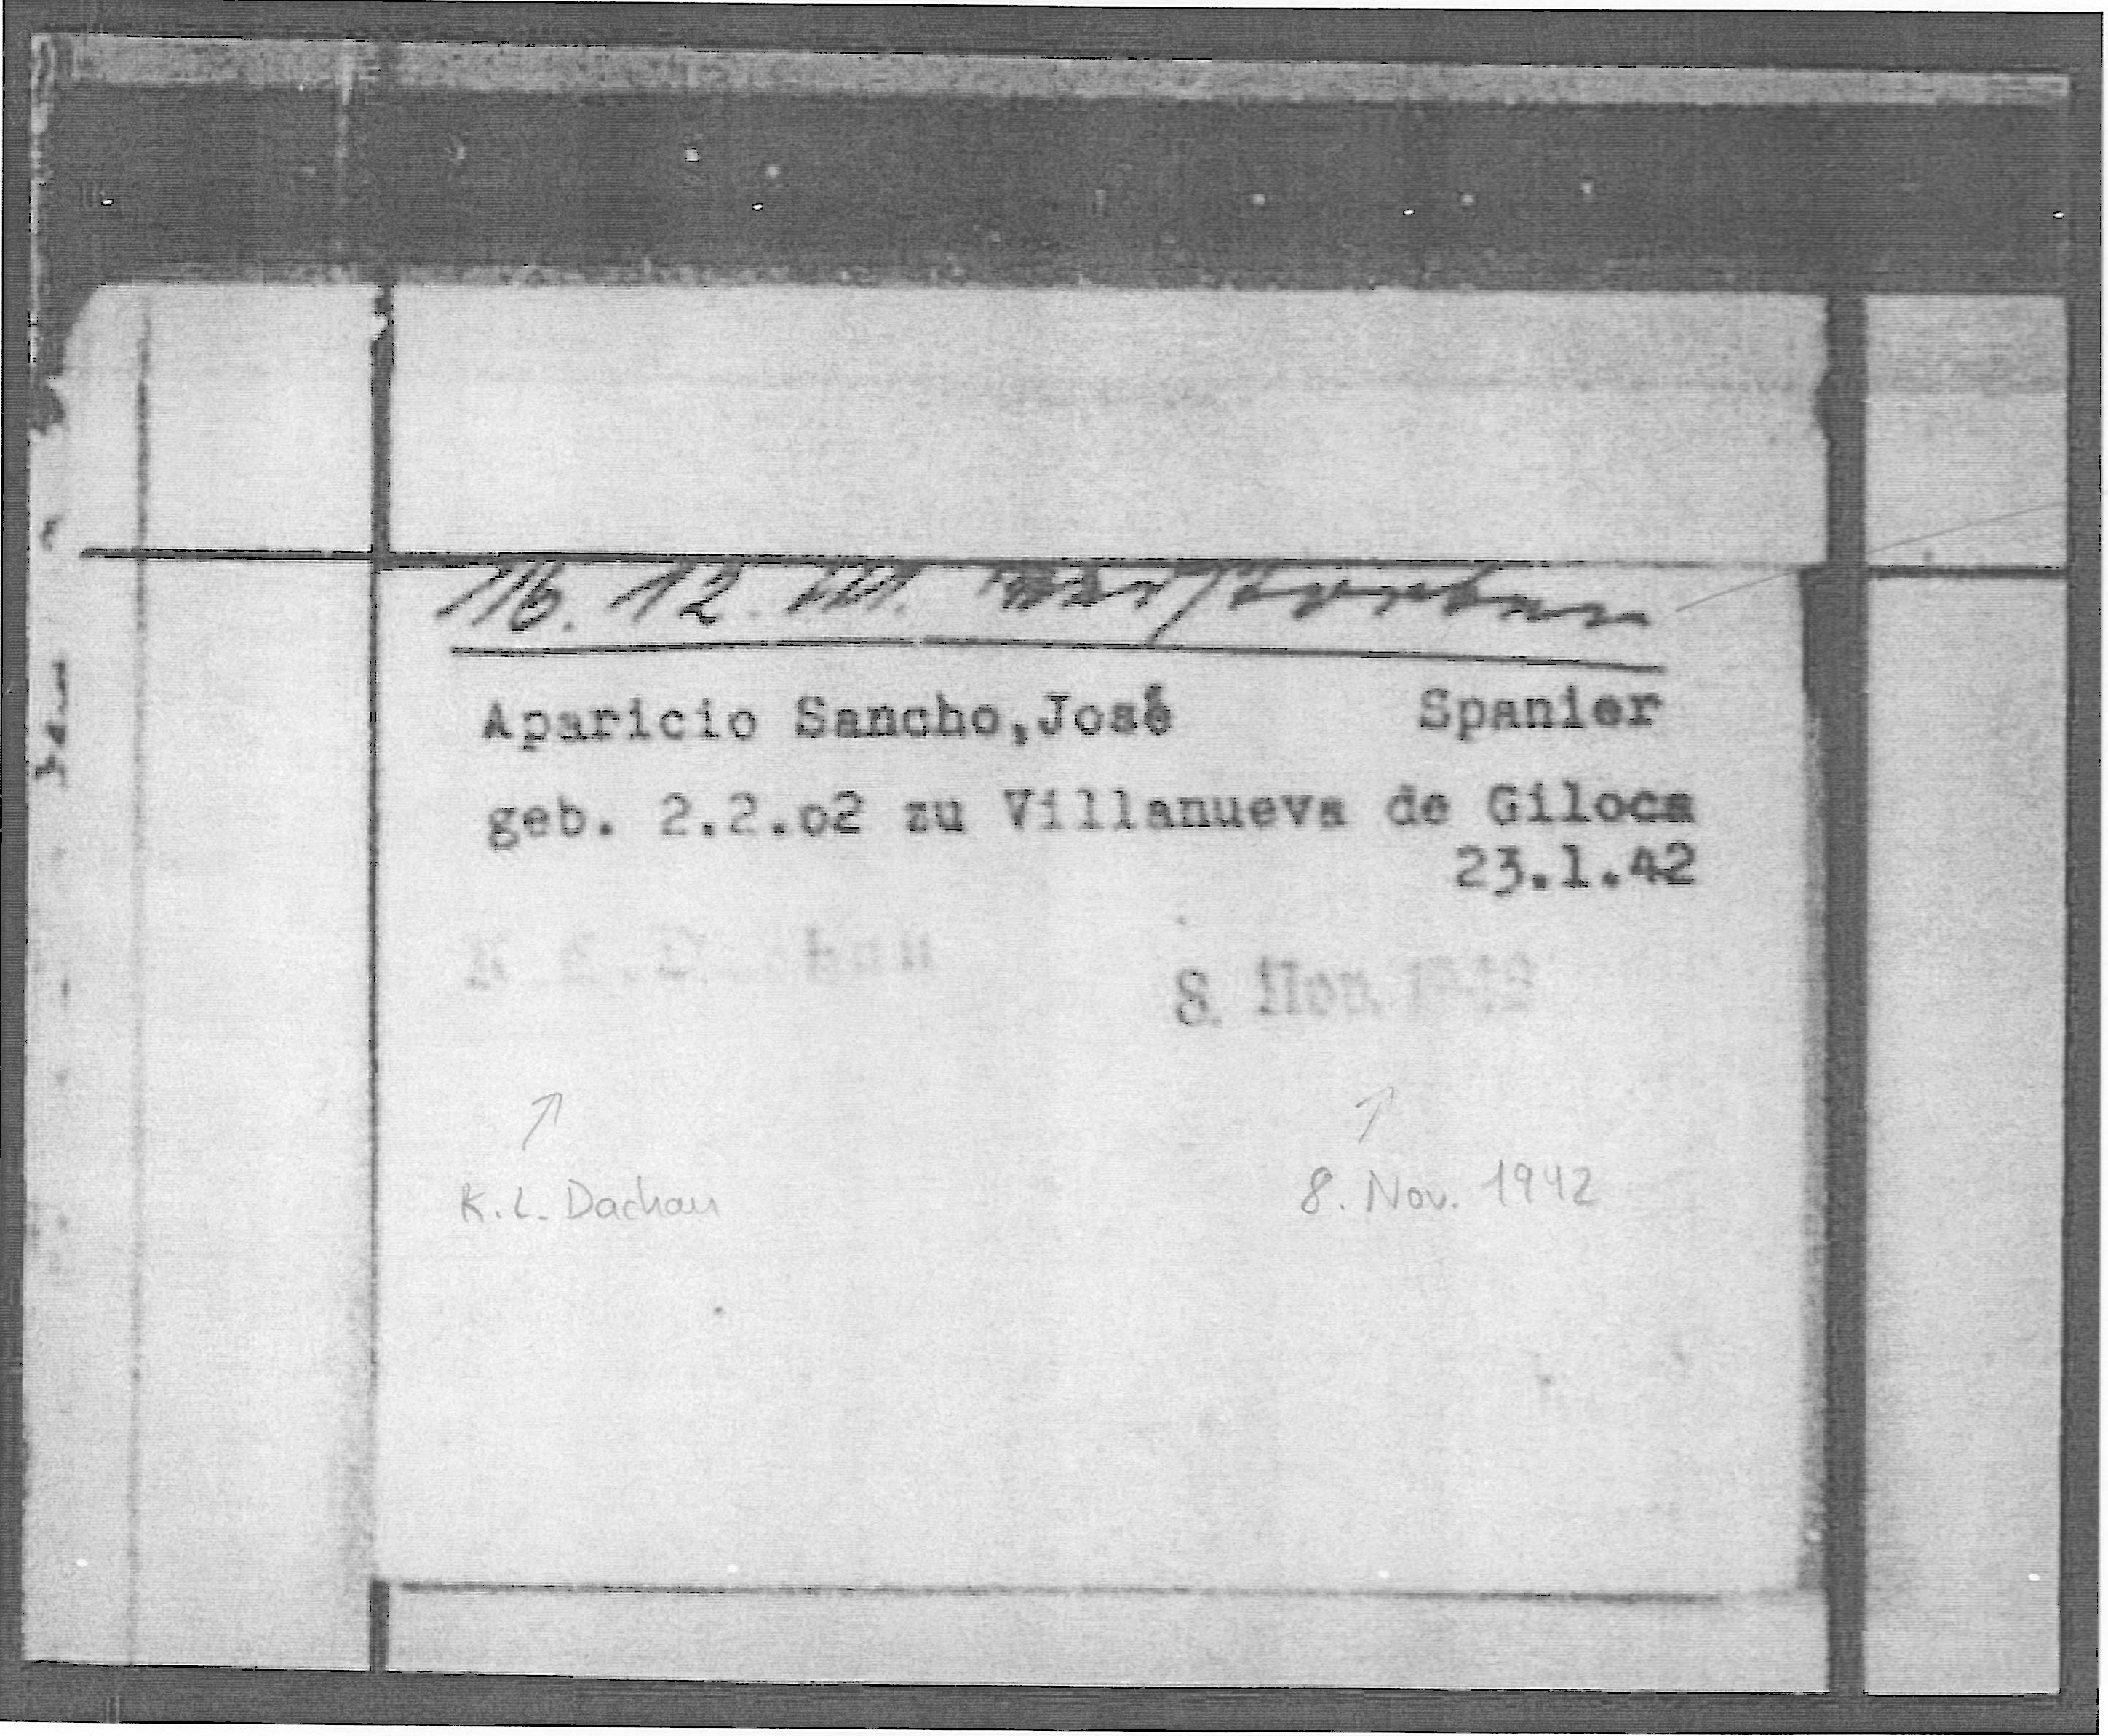 16. 12. verstorben
Aparicio Sancho,José Spanier
geb. 2.2.02 zu Villanueva de Giloca
23.1.42
8. Nov. 1942
K.L. Dachau 8. Nov. 1942